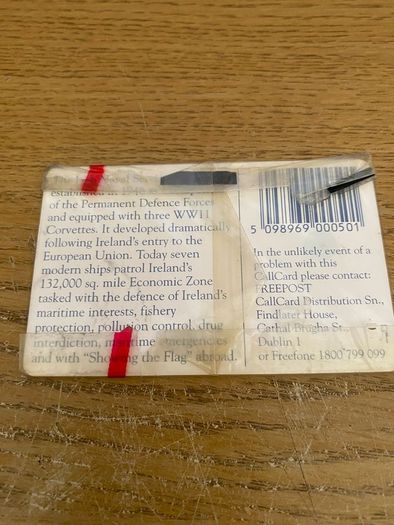 The Irish Naval Service
established in 1946
of the Permanent Defence Forces
and equipped with three WW11
Corvettes. It developed dramatically
following Ireland's entry to the
European Union. Today seven
modern ships patrol Ireland's
132,000 sq. mile Economic Zone
tasked with the defence of Ireland's
maritime interests, fishery
protection, pollution control, drug
interdiction, maritime emergencies
and with "Showing the Flag" abroad.
5 098969 000501
In the unlikely event of a
problem with this
CallCard please contact:
FREEPOST
CallCard Distribution Sn.,
Findlater House,
Cathal Brugha St.,
Dublin 1
or Freefone 1800 799 099